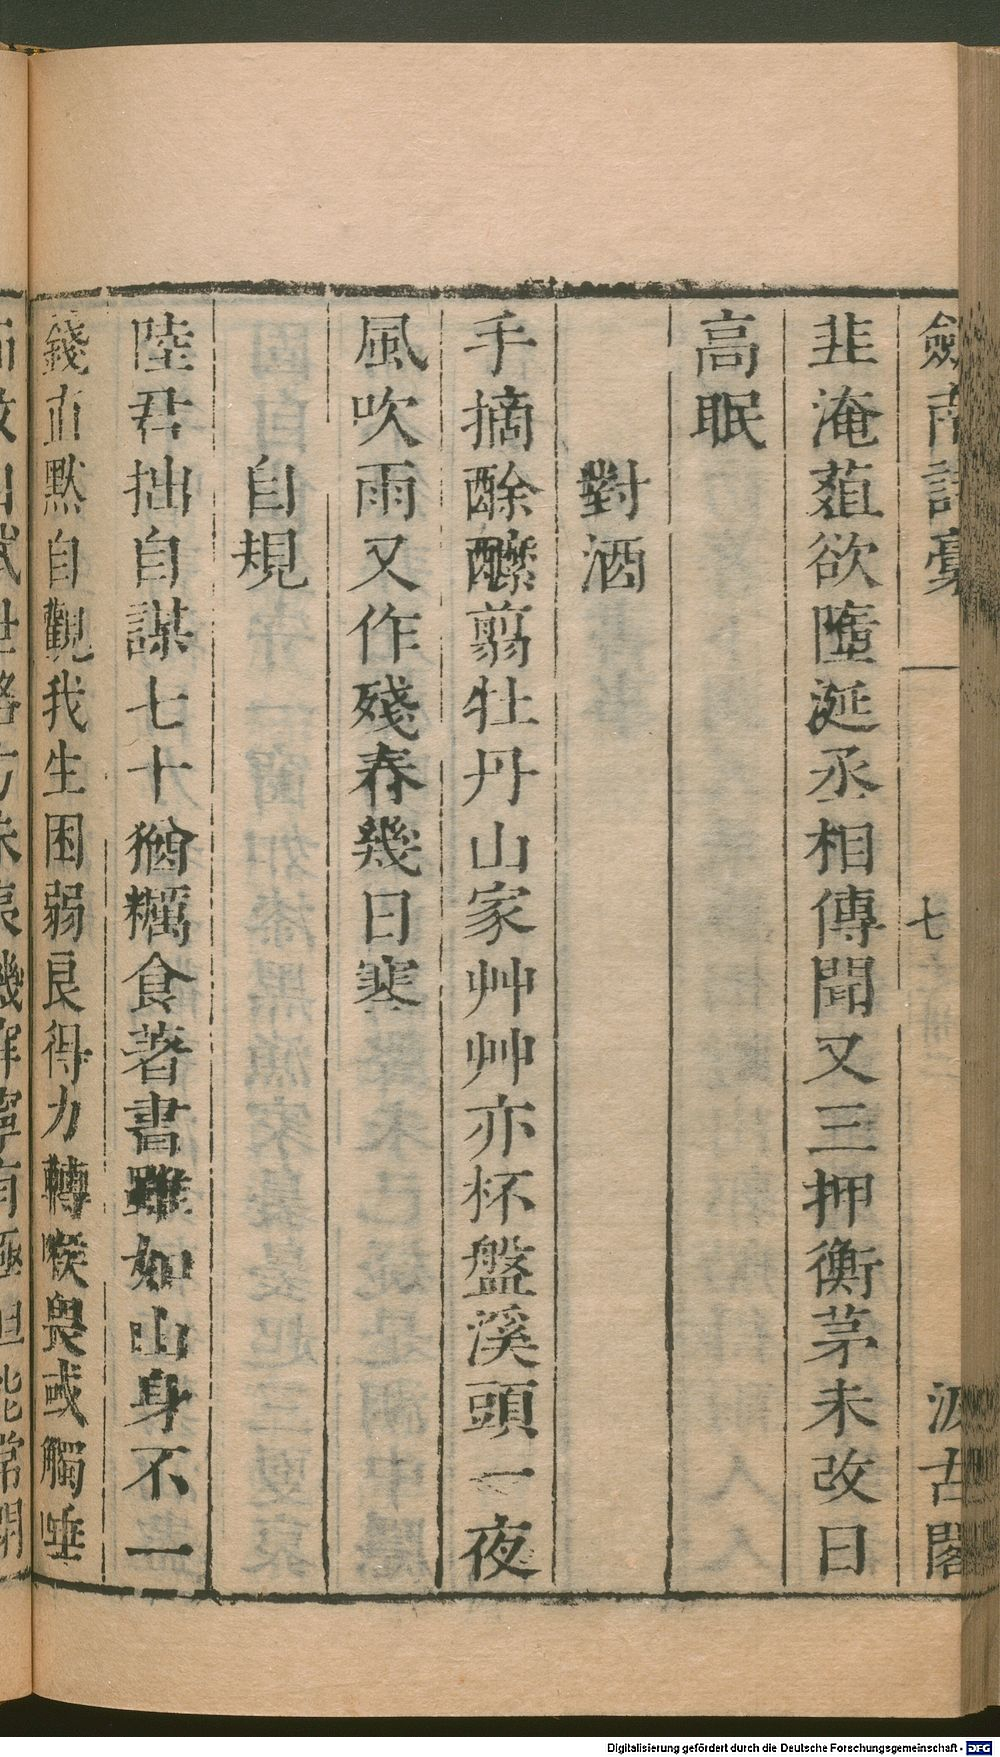 劔南詩稾
七
汲古閣
韭淹葅欲墮涎丞相傳聞又三押衡茅未改日
高眠
對酒
手摘酴醿翦牡丹山家艸艸亦杯盤溪頭一夜
風吹雨又作殘春幾日寒
自規
陸君拙自謀七十猶糲食著書雖如山身不一
錢直默自觀我生困弱良得力轉喉畏或觸唾
Digitalisierung gefördert durch die Deutsche Forschungsgemeinschaft - DFG